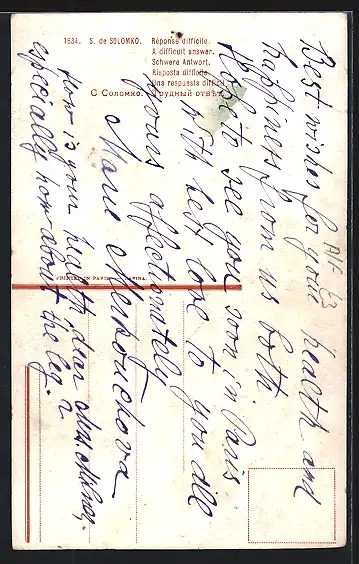 1634. S. de SOLOMKO.
Réponse difficile.
A difficult answer.
Schwere Antwort.
Risposta difficile.
Una respuesta difícil.
С. Соломко. Трудный ответ.
PRINTED IN PARIS
Best wishes for your health and
happiness from us both
Hope to see you soon in Paris
with best love to you all
yours affectionately
Marie
How is your health, dear
especially how about the leg?